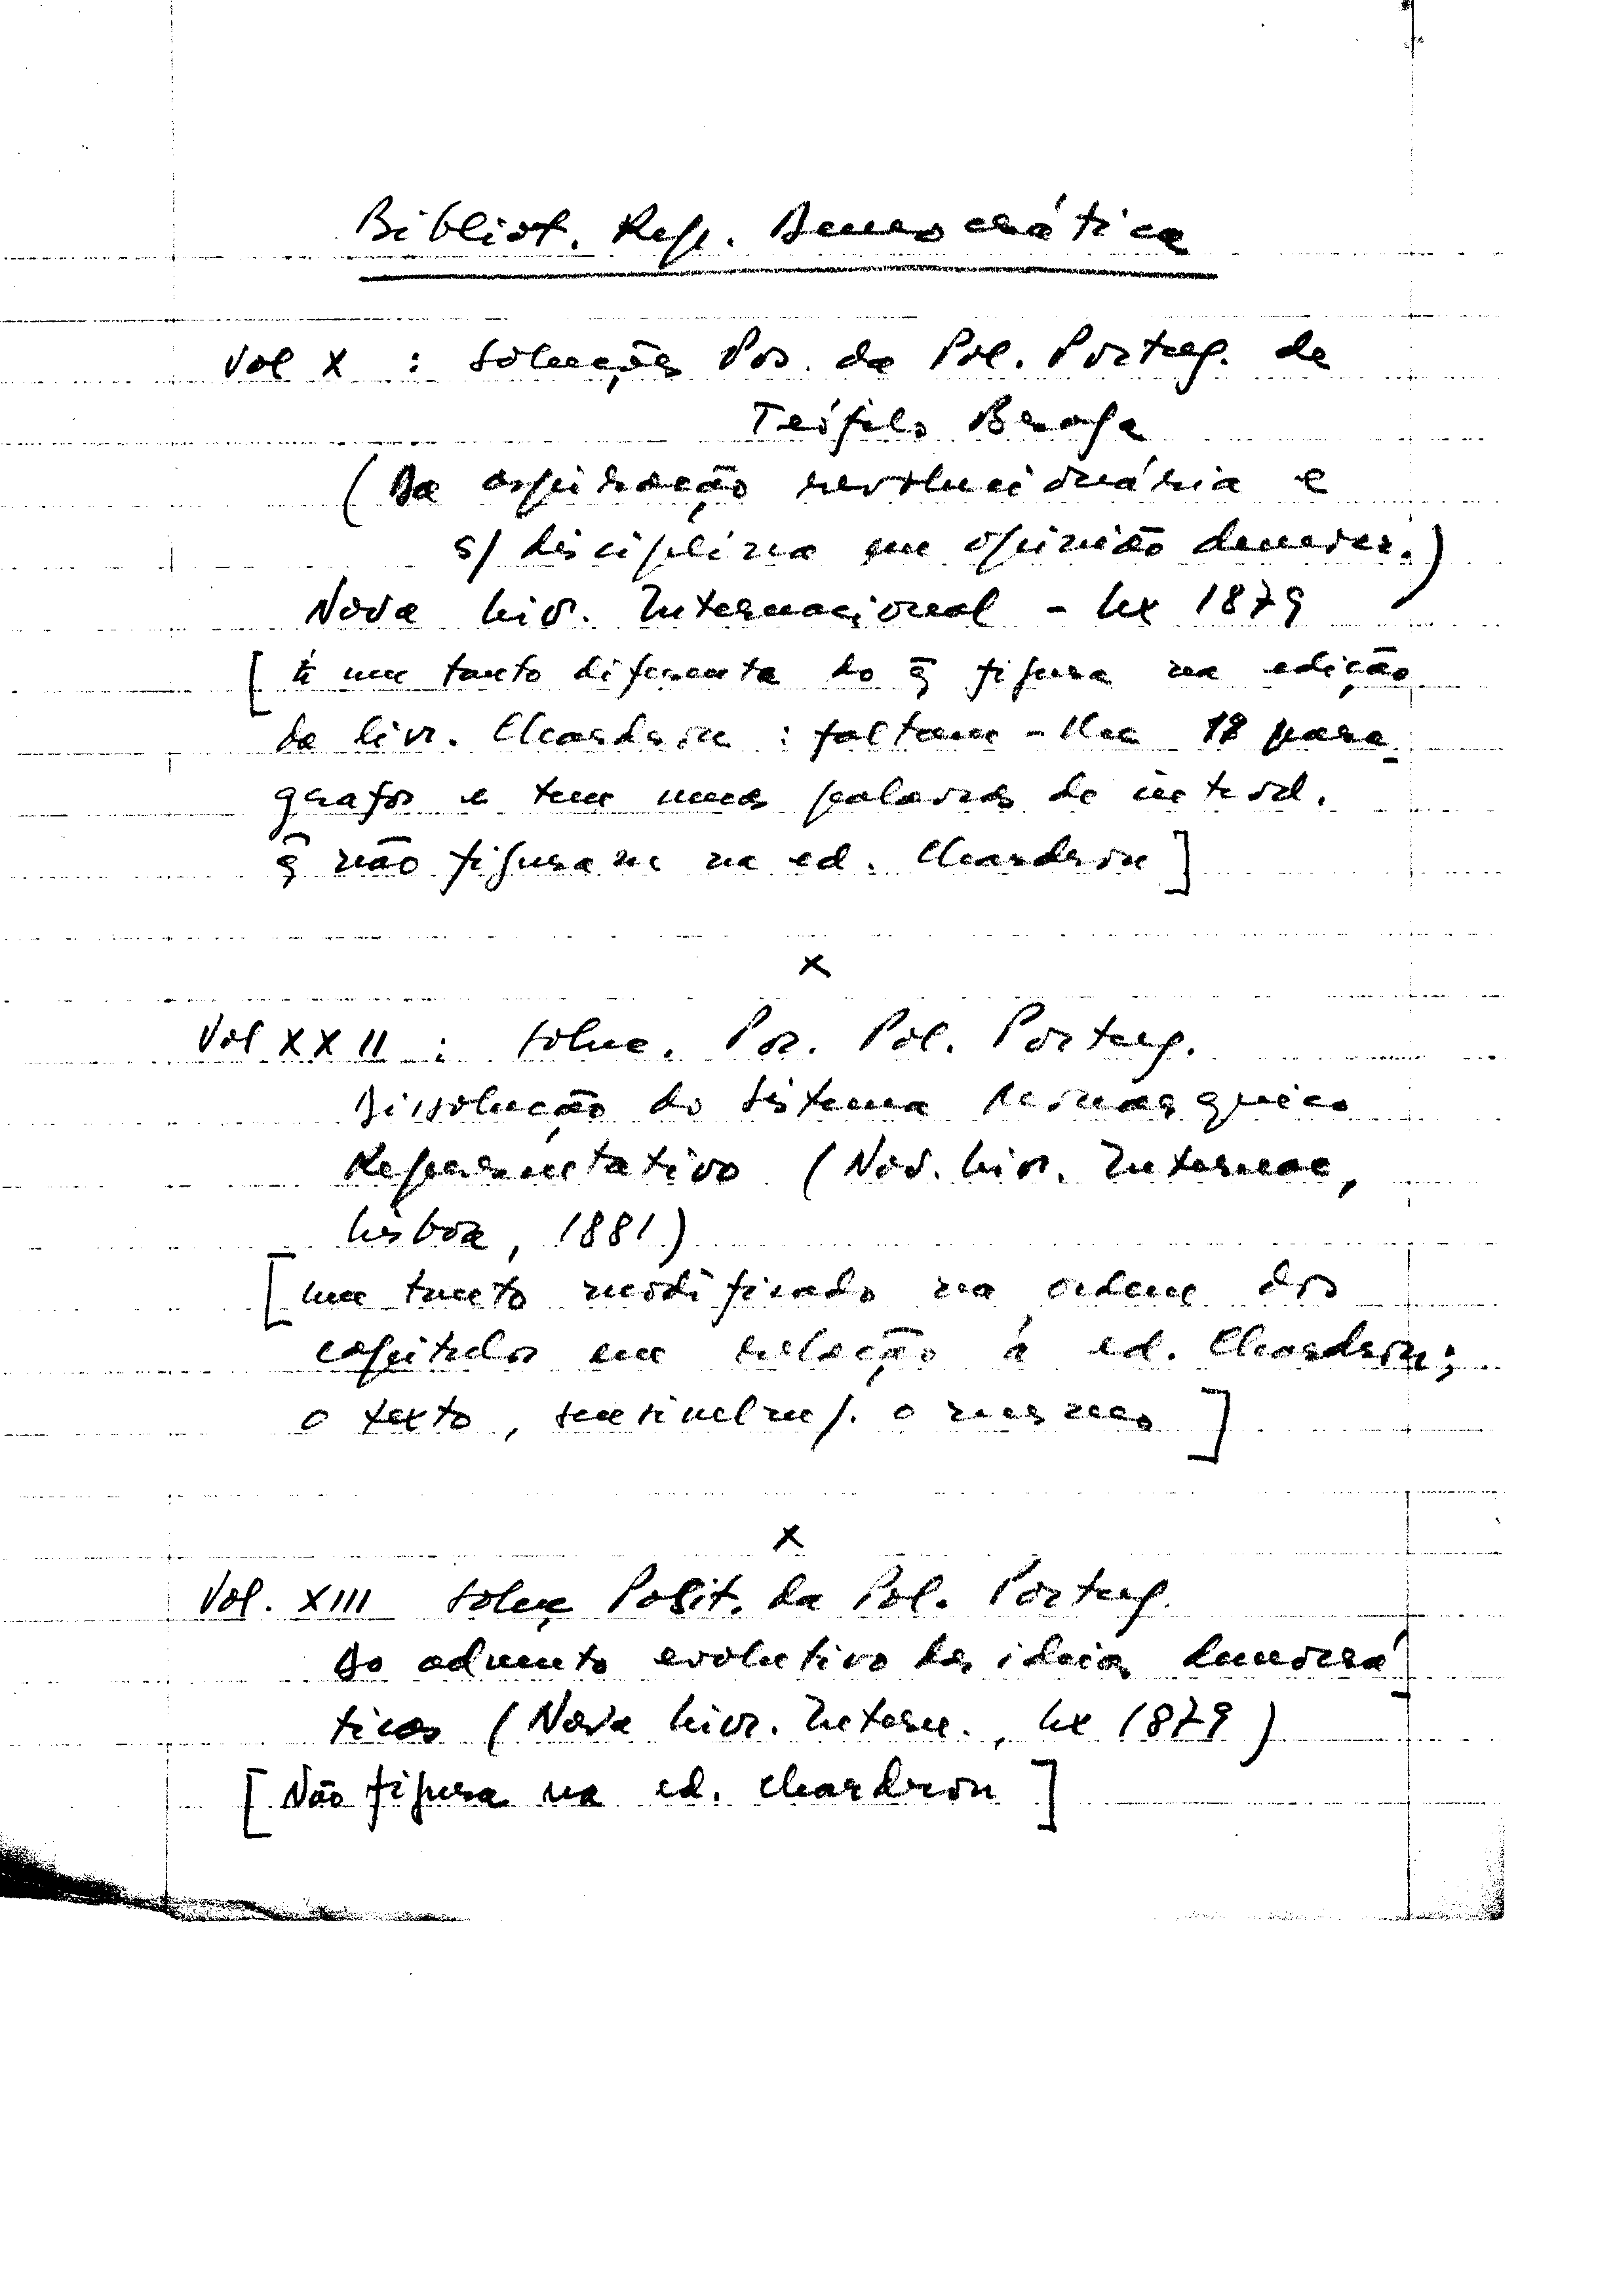 Bibliot. Rep. Democrática
Vol X : Soluções Pos. da Pol. Portug. de
Teófilo Braga
(Da aspiração revolucionária e
s/ disciplina em opinião democr.)
Nova Livr. Internacional - Lx 1879
[É um tanto diferente do q̃ figura na edição
da Livr. Chardron : faltam-lhe 18 pará-
grafos e tem umas palavras de introd.
q̃ não figuram na ed. Chardron]
x
Vol XXII : Soluc. Pos. Pol. Portug.
Dissolução do Sistema Monárquico
Representativo (Nov. Livr. Internac,
Lisboa, 1881)
[um tanto modificado na ordem dos
capítulos em relação à ed. Chardron;
o texto, sensivelm/. o mesmo]
x
Vol. XIII Soluç Posit. da Pol. Portug.
Do advento evolutivo das ideias democrá-
ticas (Nova Livr. Intern., Lx 1879)
[Não figura na ed. Chardron]